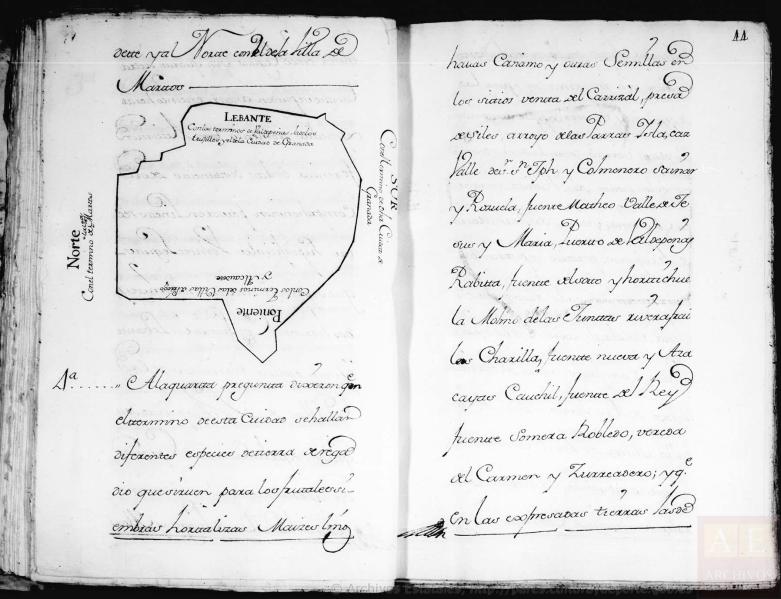 dette y al Norte con el de la Villa de
Martos
LEBANTE
Con los terminos de Valdepeñas, los
Villares y el de la Ciudad de Granada
SUR
Con el termino de dha Ciudad de
Granada
Poniente
Con los Terminos de las Villas de Priego
y Alcaudete
Norte
Con el termino de la Villa de Martos
4a ...... „ A la quarta pregunta dixeron qe en
el termino de esta Ciudad se hallan
diferentes especies de tierra de rega
dio que sirven para los frutales si
embras hortalizas Maizes lino
44
havas Cañamo y otras Semillas en
los sitios venta del Carrizal, presa
de Siles, arroyo de las Parras Isla, caz
Valle de Sn Jph y Colmonero
y Rozuela, fuente Matheo Valle de Je
sus y Maria, Puerto de Valdepeñas
Rabitta, fuente del sato y hortichue
la Molino de las Juntas rivera frai
les Charilla, fuente nueva y Aza
cayas Cauchil, fuente del Rey
fuente Somera Robledo, vereda
del Carmen y Zurreadero; y qe
en las expresadas tierras las de
AE
ARCHIVOS